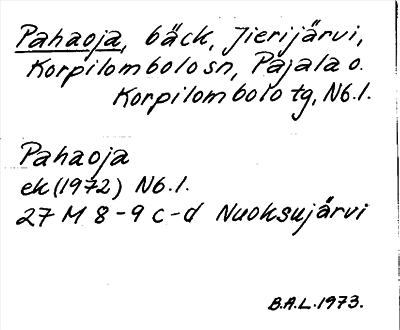 Pahaoja, bäck, Jierijärvi,
Korpilombolo sn, Pajala o.
Korpilombolo tg, Nb. l.
Pahaoja
ek (1972) Nb. l.
27 M 8-9 c-d Nuoksujärvi
B.A.L. 1973.